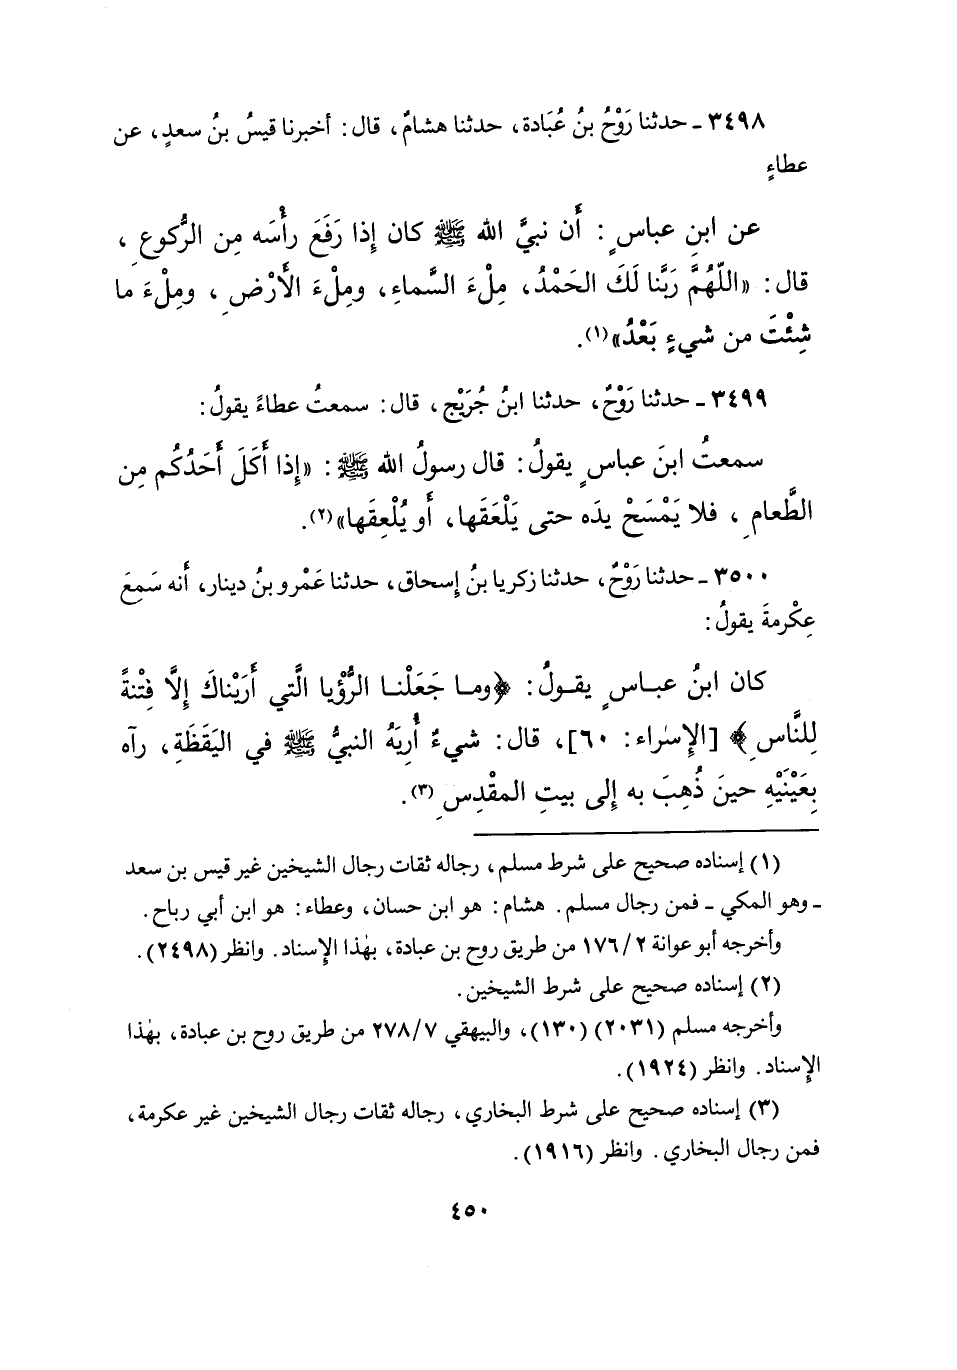 ٣٤٩٨ ـ حدثنا رَوْحُ بنُ عُبَادة، حدثنا هشامٌ، قال: أخبرنا قيسُ بنُ سعدٍ، عن
عطاءٍ
عن ابنِ عباسٍ: أَن نبيَّ الله ﷺ كان إِذا رَفَعَ رأْسَه مِن الرُّكوعِ،
قال: «اللّهُمَّ رَبَّنا لَكَ الحَمْدُ، مِلْءَ السَّماءِ، ومِلْءَ الأَرْضِ، ومِلْءَ ما
شِئْتَ من شيءٍ بَعْدُ»(١).
٣٤٩٩ ـ حدثنا رَوْحٌ، حدثنا ابنُ جُرَيْجٍ، قال: سمعتُ عطاءً يقولُ:
سمعتُ ابنَ عباسٍ يقولُ: قال رسولُ الله ﷺ: «إِذا أَكَلَ أَحَدُكُم مِن
الطَّعامِ، فلا يَمْسَحْ يدَه حتى يَلْعَقَها، أَو يُلْعِقَها»(٢).
٣٥٠٠ ـ حدثنا رَوْحٌ، حدثنا زكريا بنُ إِسحاق، حدثنا عَمْرو بنُ دينار، أَنه سَمِعَ
عِكْرمةَ يقولُ:
كان ابنُ عبـاسٍ يقـولُ: ﴿ومـا جَعَلْنـا الرُّؤْيا الَّتي أَرَيْناكَ إِلَّا فِتْنةً
لِلنَّاسِ﴾ [الإِسراء: ٦٠]، قال: شيءٌ أُرِيَهُ النبيُّ ﷺ في اليَقَظَةِ، رآه
بِعَيْنَيْهِ حينَ ذُهِبَ به إِلى بيتِ المقْدِسِ(٣).
(١) إسناده صحيح على شرط مسلم، رجاله ثقات رجال الشيخين غير قيس بن سعد
ـ وهو المكي ـ فمن رجال مسلم. هشام: هو ابن حسان، وعطاء: هو ابن أبي رباح.
وأخرجه أبو عوانة ١٧٦/٢ من طريق روح بن عبادة، بهٰذا الإِسناد. وانظر (٢٤٩٨).
(٢) إسناده صحيح على شرط الشيخين.
وأخرجه مسلم (٢٠٣١) (١٣٠)، والبيهقي ٢٧٨/٧ من طريق روح بن عبادة، بهٰذا
الإِسناد. وانظر (١٩٢٤).
(٣) إسناده صحيح على شرط البخاري، رجاله ثقات رجال الشيخين غير عكرمة،
فمن رجال البخاري. وانظر (١٩١٦).
٤٥٠